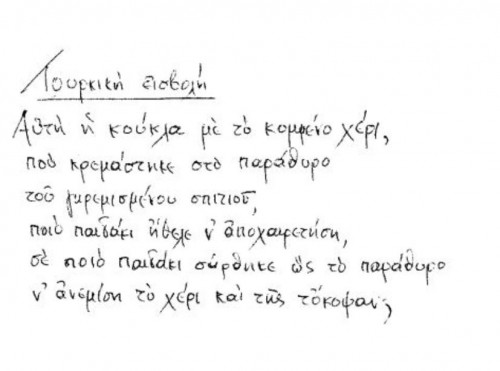 Τουρκικὴ εἰσβολή
Αὐτὴ ἡ κούκλα μὲ τὸ κομμένο χέρι,
ποὺ κρεμάστηκε στὸ παράθυρο
τοῦ γκρεμισμένου σπιτιοῦ,
ποιὸ παιδάκι ἤθελε ν' ἀποχαιρετήση,
σὲ ποιὸ παιδάκι σύρθηκε ὣς τὸ παράθυρο
ν' ἀνεμίση τὸ χέρι καὶ τῆς τὄκοψαν;